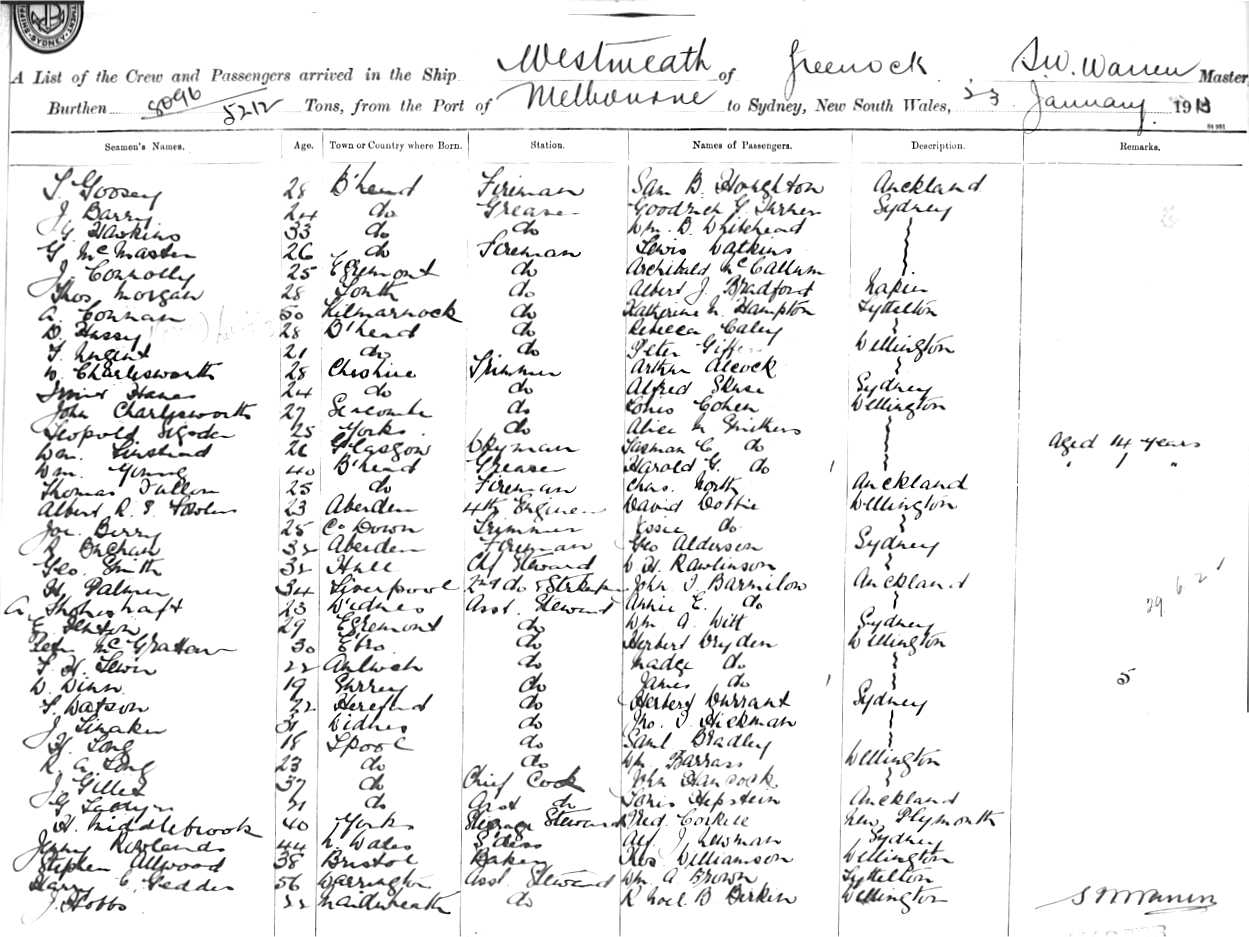 SYDNEY
A List of the Crew and Passengers arrived in the Ship Westmeath of Greenock, S.W. Warren Master,
Burthen 8096 / 5212 Tons, from the Port of Melbourne to Sydney, New South Wales, 23 January 1913
Seamen's Names. Age. Town or Country where Born. Station. Names of Passengers. Description. Remarks.
T Goosey 28 B'head Fireman Sam B. Houghton Auckland
J. Barry 24 do Greaser Goodrich G. Turner Sydney
G Hawkins 33 do do Wm. B. Whitehead
G McMaster 26 do Fireman Lewis Watkins
J. Connolly 25 Egremont do Archibald McCallum
Thos Morgan 28 South do Albert J Bradford Napier
A. Connan 50 Kilmarnock do Katherine M. Hampton Lyttelton
D Hussy 28 B'head do Rebecca Caley
T. Nugent 21 do do Peter Wellington
W Charlesworth 28 Cheshire Trimmer Arthur Alcock
24 do do Alfred Skuse Sydney
John Charlesworth 27 Seacombe do Louis Cohen Wellington
Leopold 25 Yorks. do Alice M Smithers
Wm. 26 Glasgow Tasman C. do Aged 14 years
Wm. Young 40 B'head Greaser Harold G. do 1 " 1 "
Thomas Fallon 25 do Fireman Chas. North Auckland
Albert R. E. 23 Aberdeen 4th Engineer David Dottie Wellington
Jos. Berry 25 Co Down Trimmer Essie do
R 32 Aberdeen Fireman Geo Alderson Sydney
Geo. Smith 32 Hull Chf Steward W H. Rawlinson
H. Palmer 34 Liverpool 2nd do & Strkeepr John T Barnilow Auckland
A. 23 Widnes Asst. Steward Annie E. do 29 6 2 1
E. Fenton 29 Egremont do Wm A. Witt Sydney
Peter McGrattan 30 do Herbert Dryden Wellington
T. H. Lewin 22 do Madge do
W. Winn 19 Surrey do James do 1 5
T. Watson 22 Hereford do Herbert Durrant Sydney
J Linaker 31 Widnes do Jno. T. Hickman
H. Long 18 L'pool do Saml Bradley
R. A. Long 23 do do Wm. Barrass Wellington
J Gilles 37 do Chief Cook John Hancock
G 21 do Asst do Louis Hepstein Auckland
H. Middlebrook 40 Yorks Steerage Steward Fred. Corkill New Plymouth
Jenny Rowlands 44 N. Wales S'dess Alf. J Newman Sydney
Stephen Allwood 38 Bristol Baker Thos Williamson Wellington
Harry C. Geddes 56 Warrington Asst. Steward Wm A Brown Lyttelton
J. Hobbs 22 Maidenhead do R Noel B Birkin Wellington
S W Warren